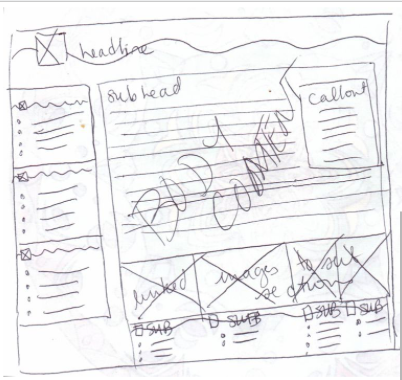 headline
subhead
callout
BODY
CONTENT
linked images to sub
sections
SUB
SUB
SUB
SUB